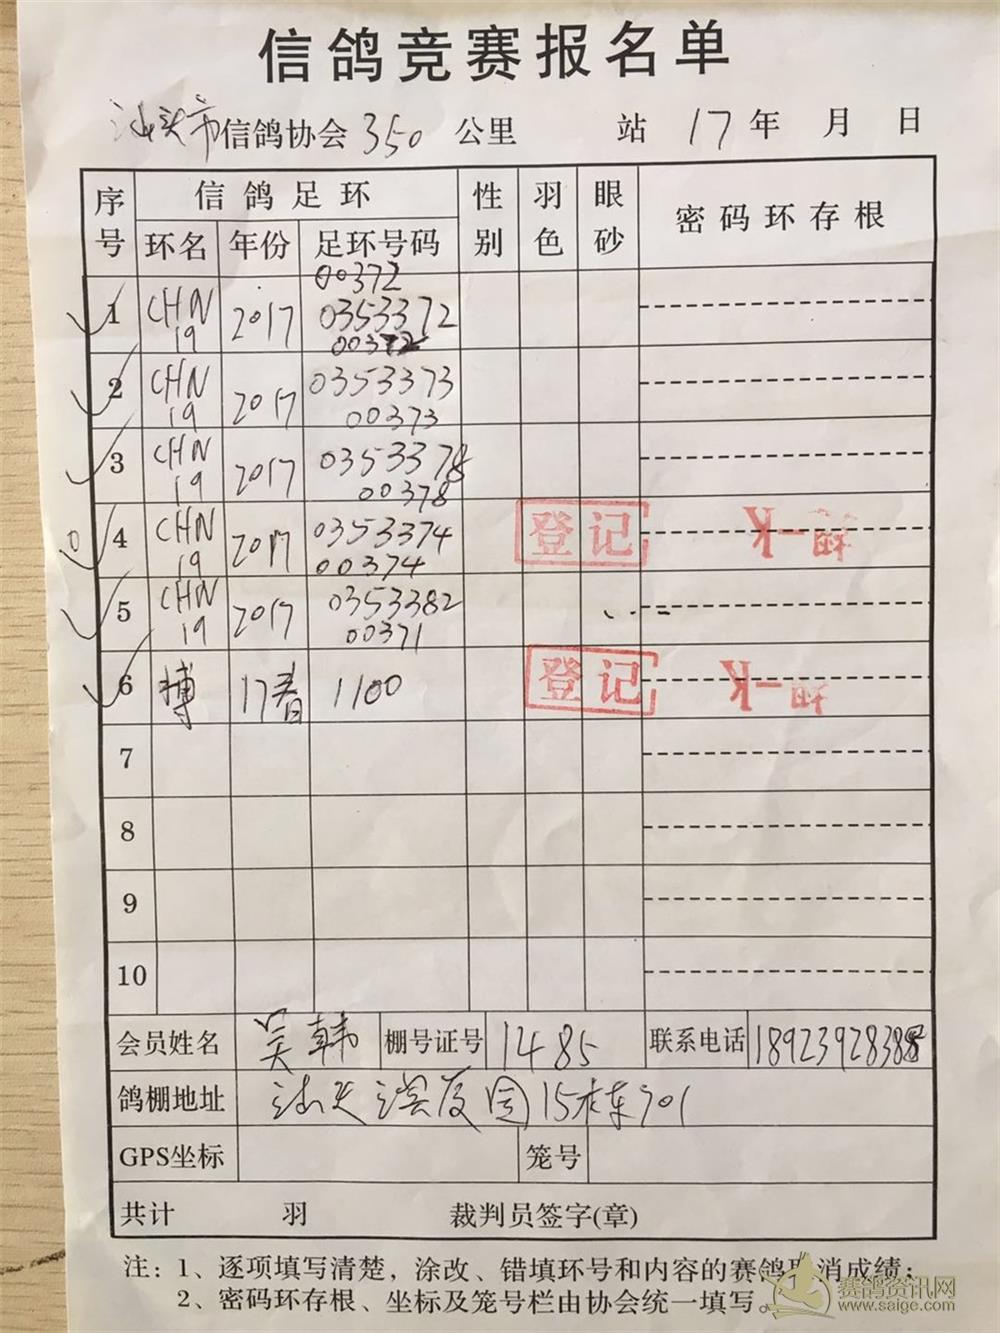 信鸽竞赛报名单
汕头市信鸽协会 350 公里 站 17 年 月 日
序号 信鸽足环 性别 羽色 眼砂 密码环存根
环名 年份 足环号码
00372
1 CHN 19 2017 0353372
00372
2 CHN 19 2017 0353373
00373
3 CHN 19 2017 0353378
00378
4 CHN 19 2017 0353374 登记
00374
5 CHN 19 2017 0353382
00371
6 搏 17春 1100 登记
7
8
9
10
会员姓名 吴韩 棚号证号 1485 联系电话
鸽棚地址 汕头 园15栋701
GPS坐标 笼号
共计 羽 裁判员签字(章)
注: 1、逐项填写清楚，涂改、错填环号和内容的赛鸽取消成绩；
2、密码环存根、坐标及笼号栏由协会统一填写。
赛鸽资讯网
www.saige.com